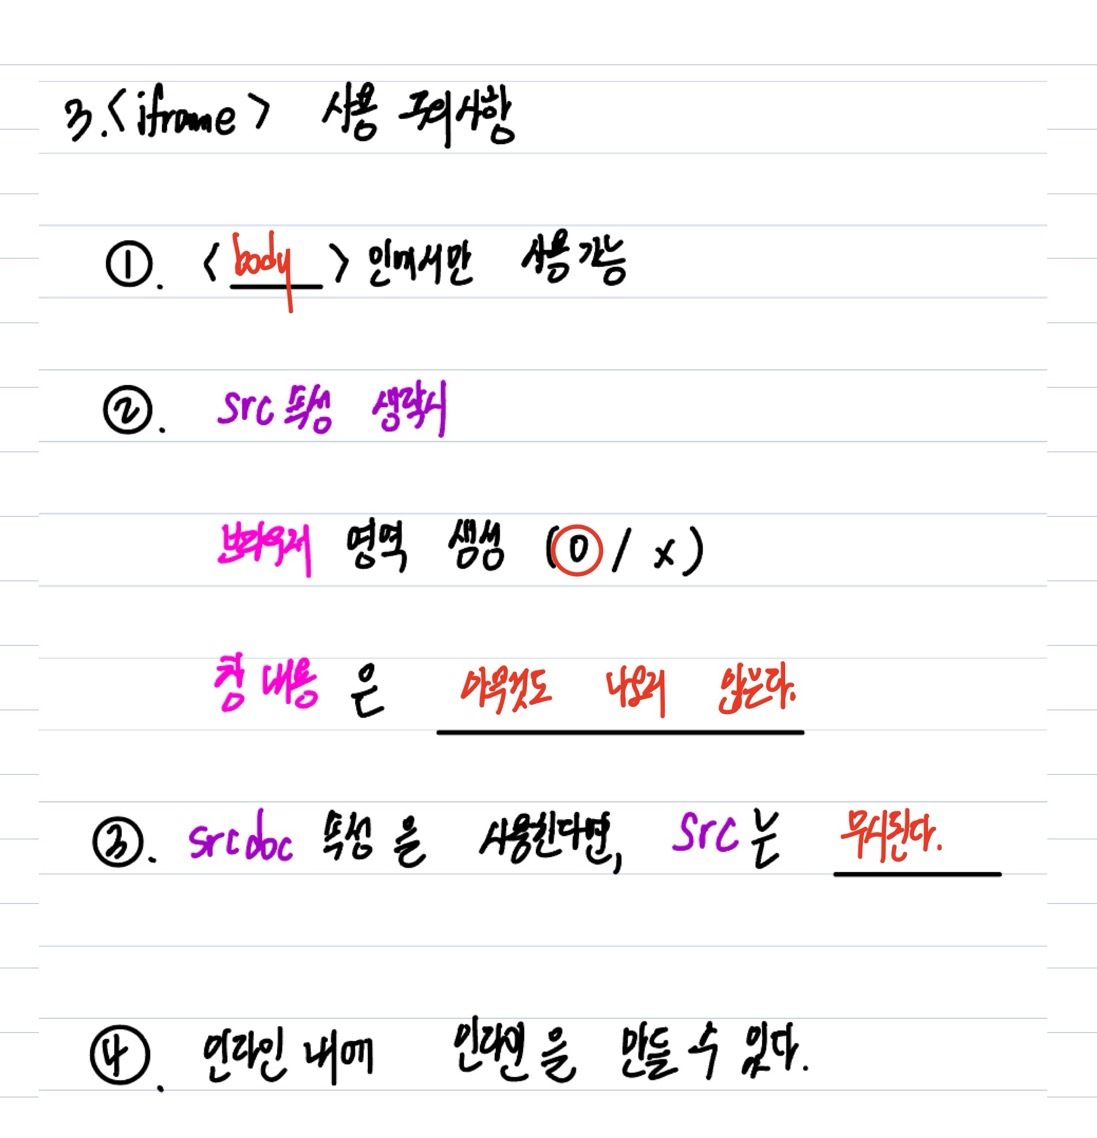 3.<iframe> 사용 주의사항
①. <body> 안에서만 사용 가능
②. src 속성 생략시
브라우저 영역 생성 (O / x)
창 내용 은 아무것도 나오지 않는다.
③. srcdoc 속성 을 사용한다면, src 는 무시된다.
④. 인라인 내에 인라인 을 만들 수 있다.